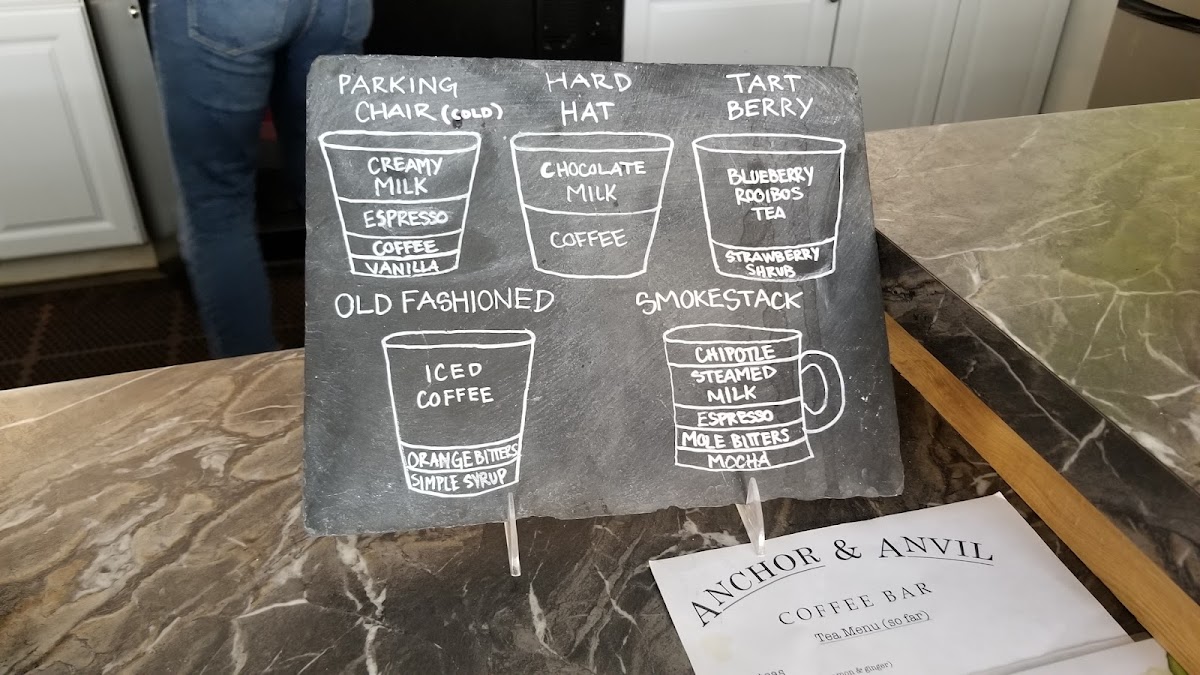 PARKING
CHAIR (COLD)
CREAMY
MILK
ESPRESSO
COFFEE
VANILLA
HARD
HAT
CHOCOLATE
MILK
COFFEE
TART
BERRY
BLUEBERRY
ROOIBOS
TEA
STRAWBERRY
SHRUB
OLD FASHIONED
ICED
COFFEE
ORANGE BITTERS
SIMPLE SYRUP
SMOKESTACK
CHIPOTLE
STEAMED
MILK
ESPRESSO
MOLE BITTERS
MOCHA
ANCHOR & ANVIL
COFFEE BAR
Tea Menu (so far)
& ginger)